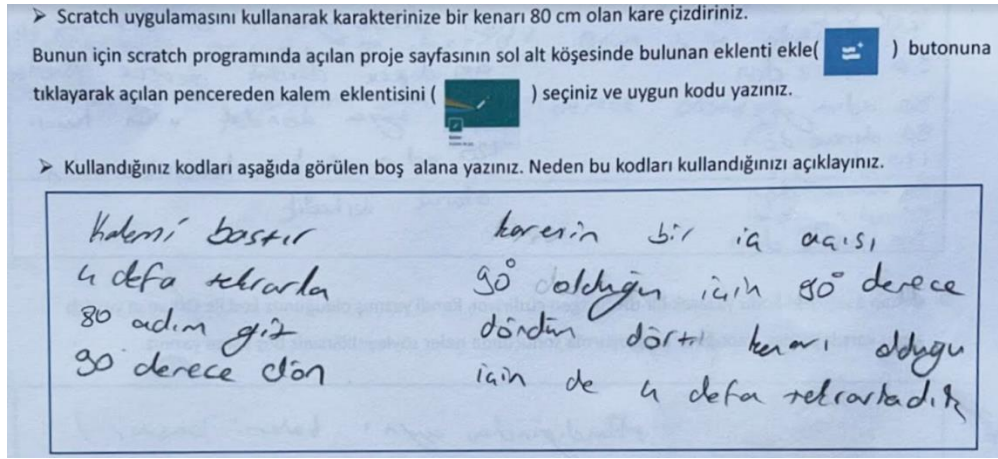 ➤ Scratch uygulamasını kullanarak karakterinize bir kenarı 80 cm olan kare çizdiriniz.
Bunun için scratch programında açılan proje sayfasının sol alt köşesinde bulunan eklenti ekle( ) butonuna
tıklayarak açılan pencereden kalem eklentisini ( ) seçiniz ve uygun kodu yazınız.
➤ Kullandığınız kodları aşağıda görülen boş alana yazınız. Neden bu kodları kullandığınızı açıklayınız.
Kalemi bastır
4 defa tekrarla
80 adım git
90 derece dön
karenin bir iç açısı
90° olduğu için 90° derece
döndün dört kenarı olduğu
için de 4 defa tekrarladık